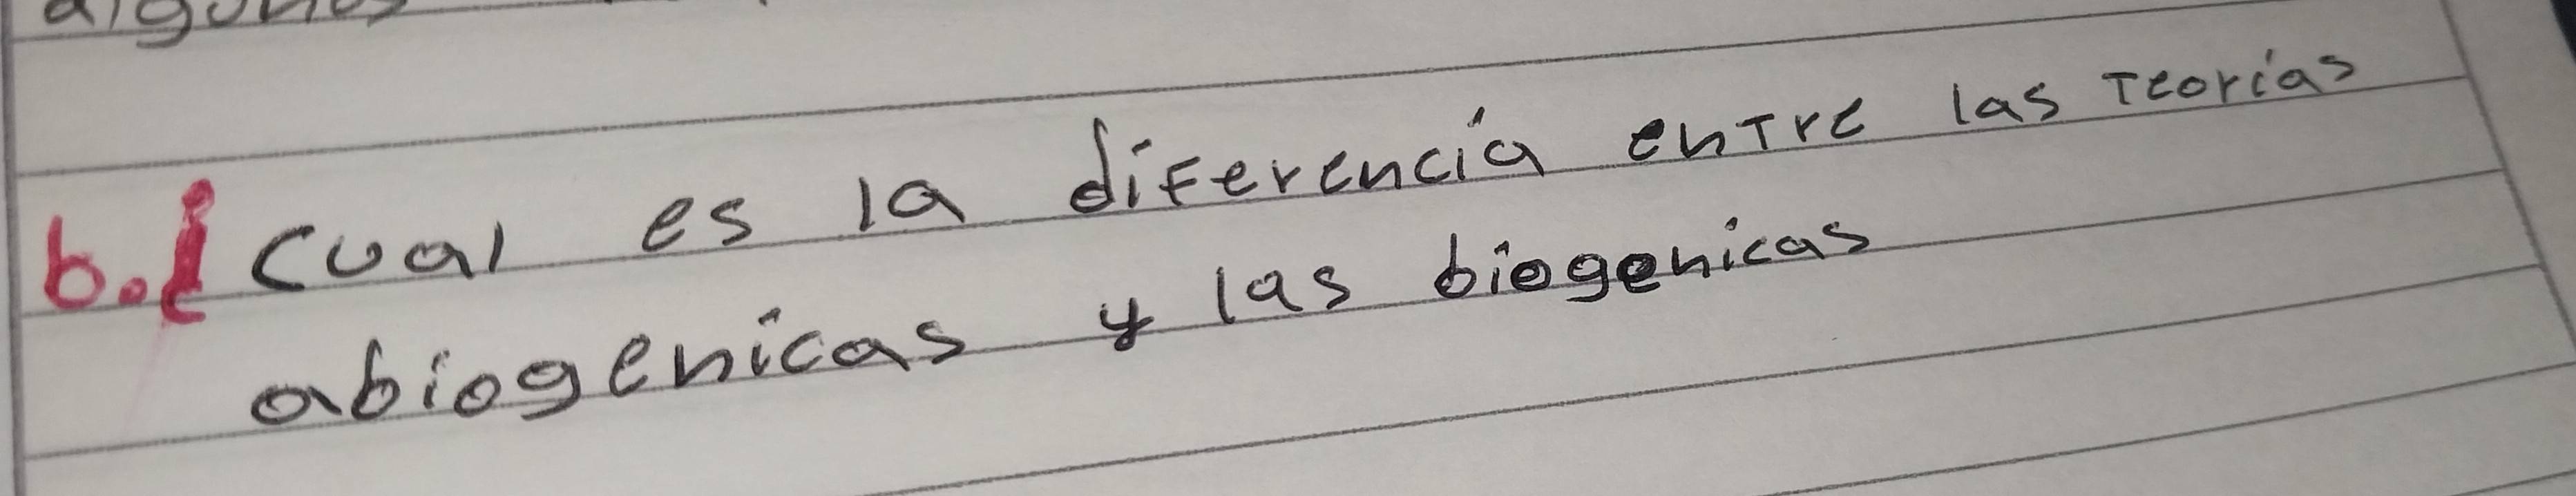 algunos
b.¿ Cual es la diferencia entre las teorías
abiogenicas y las biogenicas